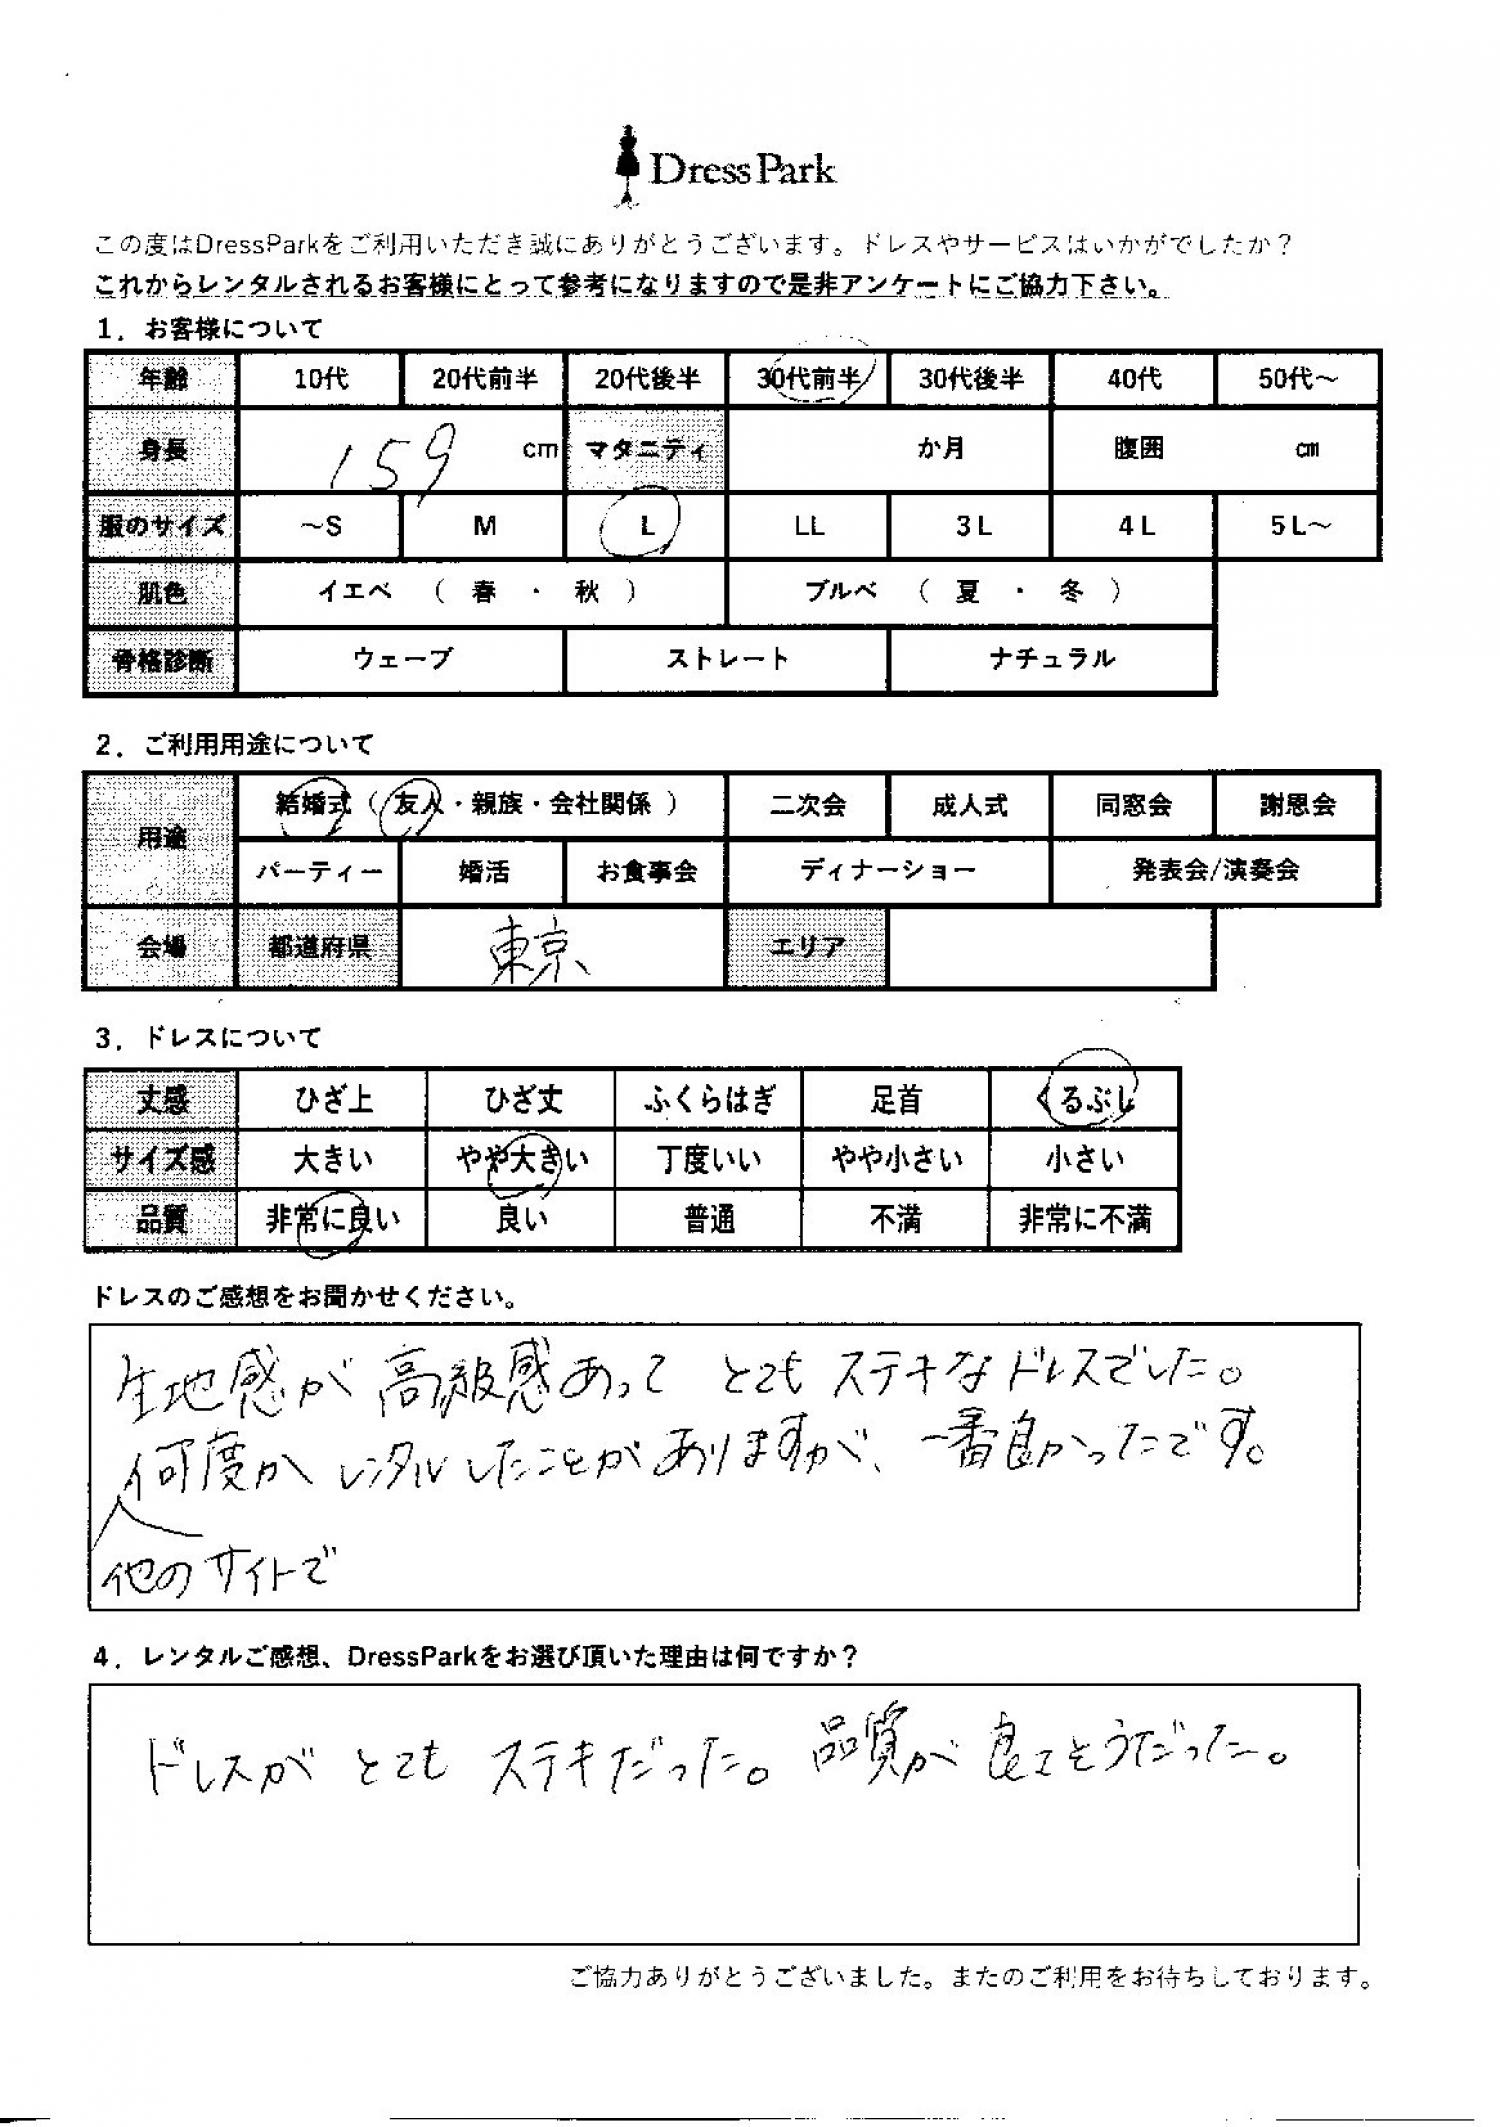 DressPark
この度はDressParkをご利用いただき誠にありがとうございます。ドレスやサービスはいかがでしたか？
これからレンタルされるお客様にとって参考になりますので是非アンケートにご協力下さい。
1．お客様について
年齢 10代 20代前半 20代後半 30代前半 30代後半 40代 50代～
身長 159 cm マタニティ か月 腹囲 ㎝
服のサイズ ～S M L LL 3L 4L 5L～
肌色 イエベ （ 春 ・ 秋 ） ブルベ （ 夏 ・ 冬 ）
骨格診断 ウェーブ ストレート ナチュラル
2．ご利用用途について
用途 結婚式（ 友人・親族・会社関係 ） 二次会 成人式 同窓会 謝恩会
パーティー 婚活 お食事会 ディナーショー 発表会/演奏会
会場 都道府県 東京 エリア
3．ドレスについて
丈感 ひざ上 ひざ丈 ふくらはぎ 足首 くるぶし
サイズ感 大きい やや大きい 丁度いい やや小さい 小さい
品質 非常に良い 良い 普通 不満 非常に不満
ドレスのご感想をお聞かせください。
生地感が高級感あって とても ステキなドレスでした。
何度か レンタルしたことがありますが、一番良かったです。
他のサイトで
4．レンタルご感想、DressParkをお選び頂いた理由は何ですか？
ドレスが とても ステキだった。品質が 良さそうだった。
ご協力ありがとうございました。またのご利用をお待ちしております。